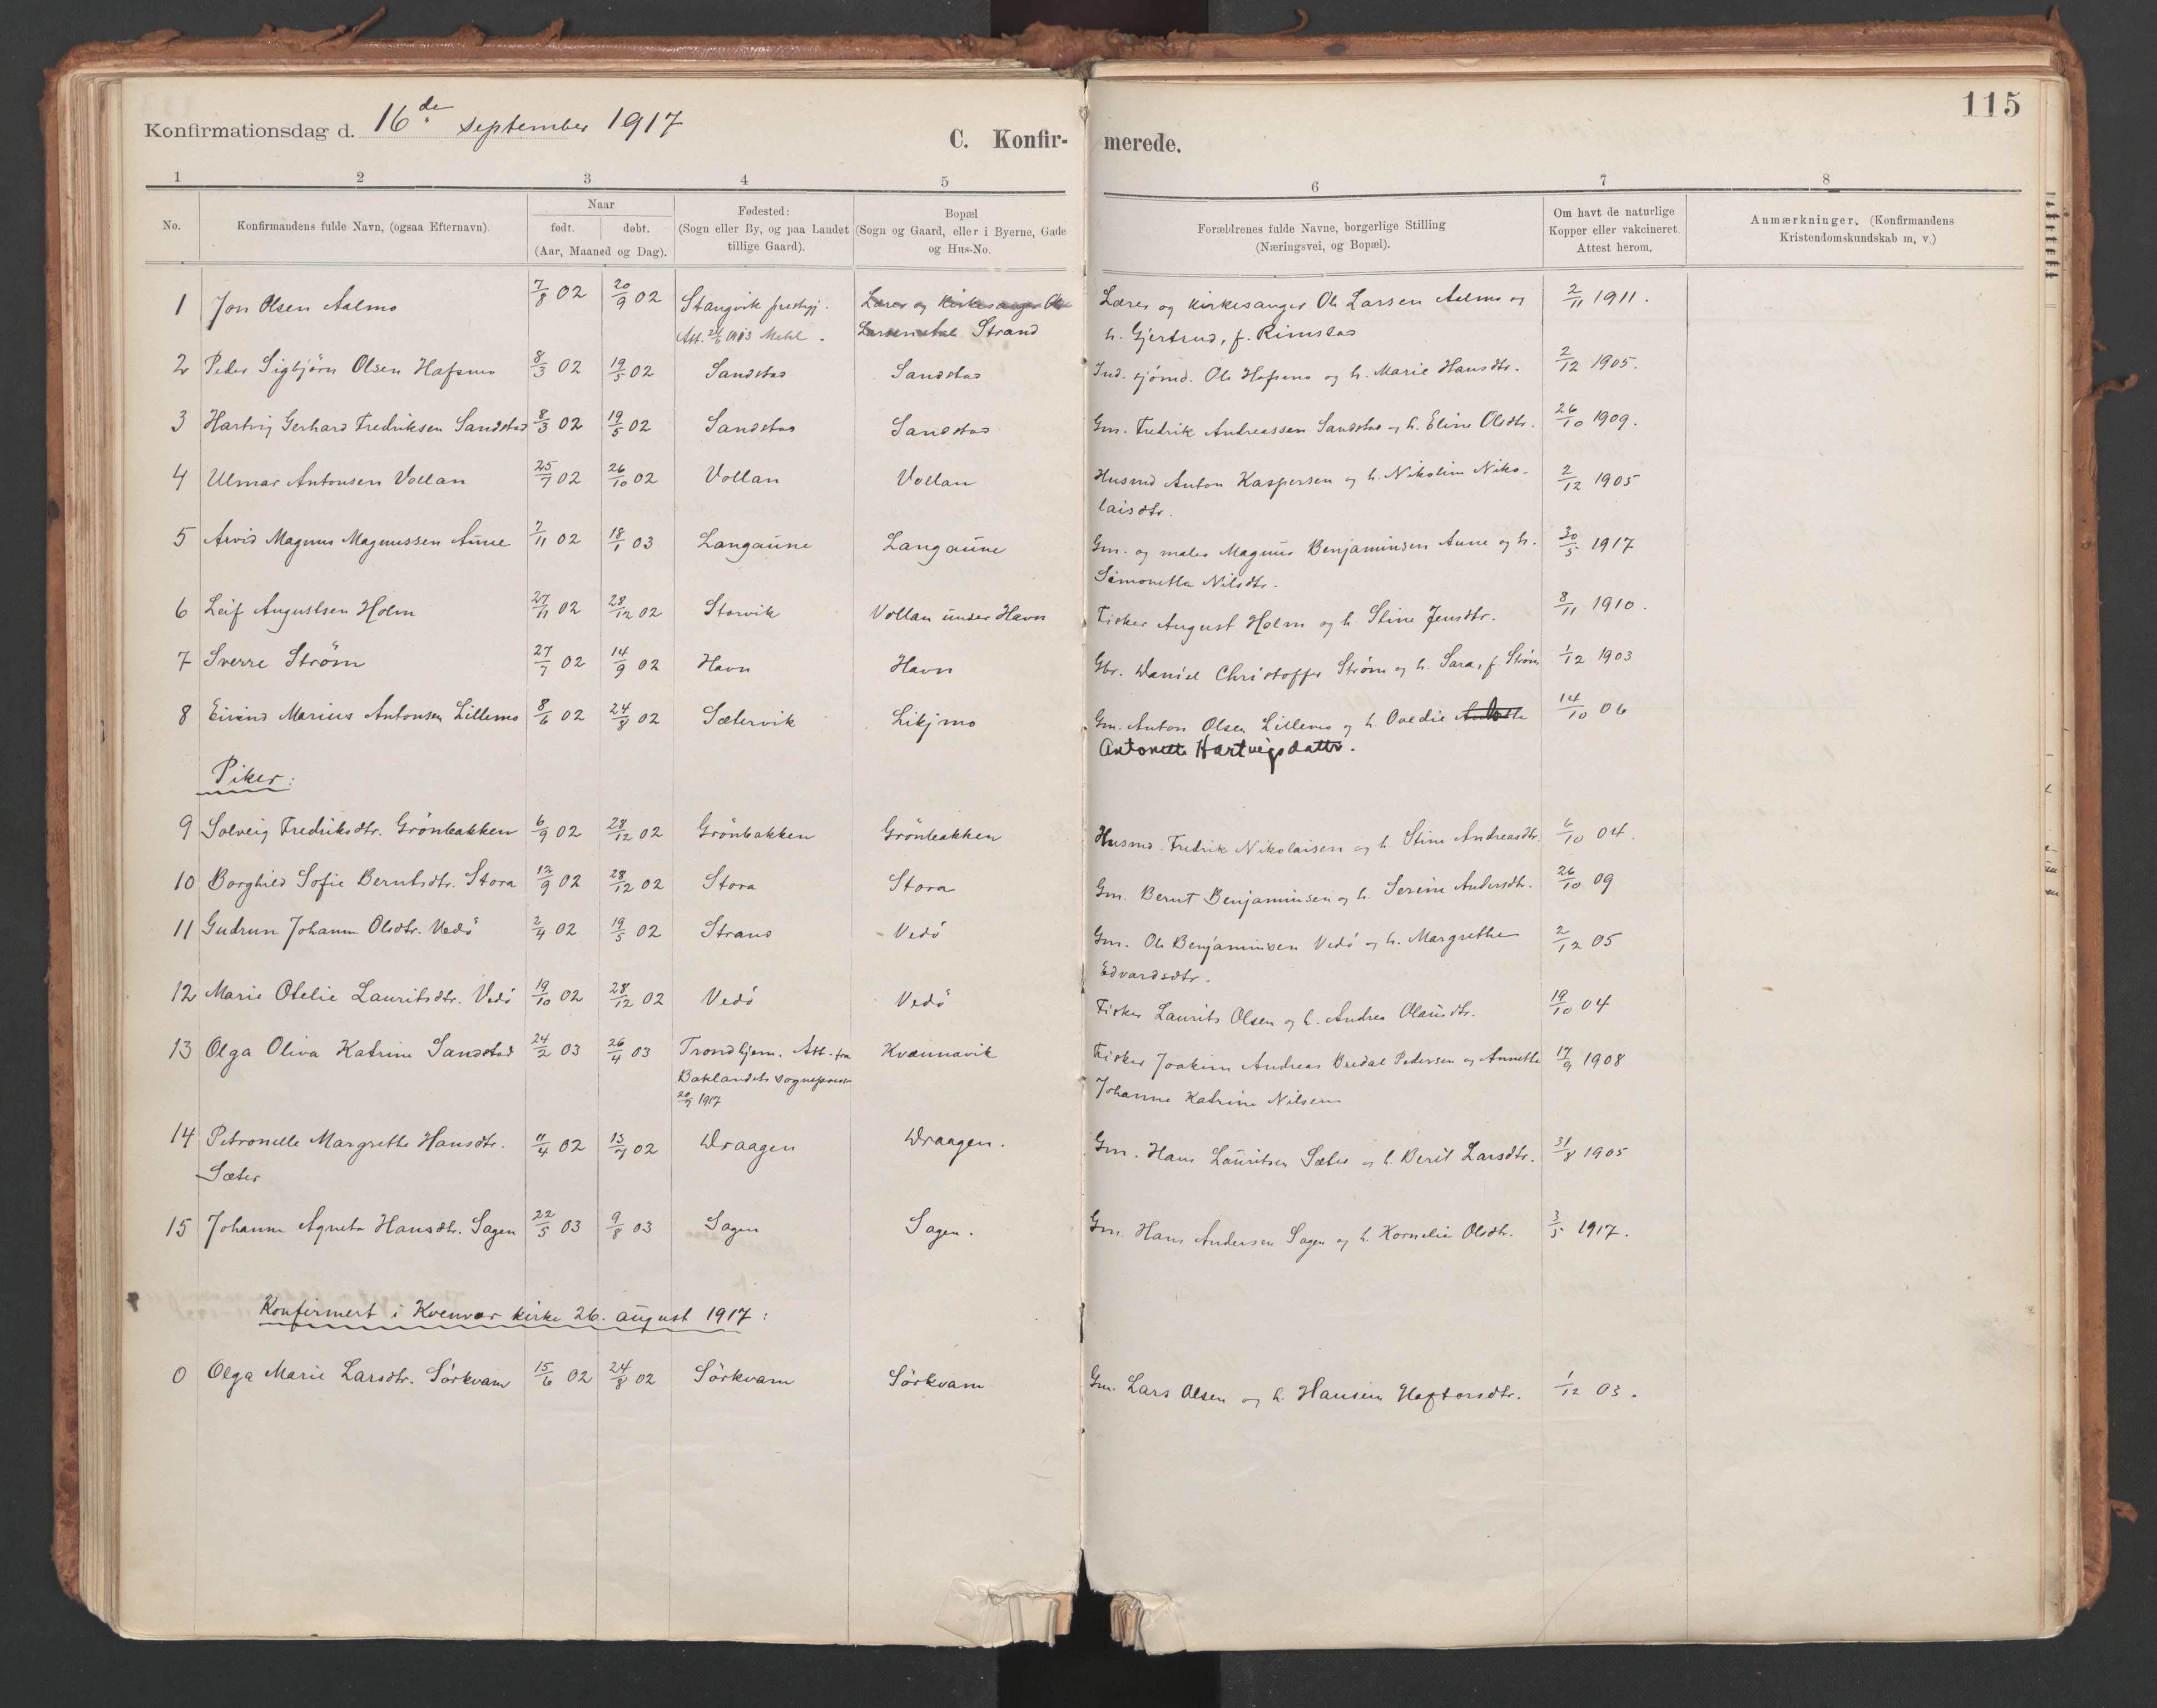 115
Konfirmationsdag d. 16de september 1917
C. Konfir- merede.
1 2 3 4 5 6 7 8
No.
Konfirmandens fulde Navn, (ogsaa Efternavn).
Naar
født. døbt.
(Aar, Maaned og Dag).
Fødested:
(Sogn eller By, og paa Landet
tillige Gaard).
Bopæl
(Sogn og Gaard, eller i Byerne, Gade
og Hus-No.
Forældrenes fulde Navne, borgerlige Stilling
(Næringsvei, og Bopæl).
Om havt de naturlige
Kopper eller vakcineret.
Attest herom.
Anmærkninger, (Konfirmandens
Kristendomskundskab m, v.)
1 Jon Olsen Aalmo 7/8 02 20/9 02 Stangvik prestgj. Lærer og kirkesanger Ole Lærer og kirkesanger Ole Larsen Aalmo og 2/11 1911.
Att. 1903 Mehl. Larsen Aal Strand h. Gjertrud, f. Rimstad
2 Peder Sigbjörn Olsen Hafsmo 8/3 02 19/5 02 Sandstad Sandstad Ind. sjömd. Ole Hafsmo og h. Marie Hansdtr. 2/12 1905.
3 Hartvig Gerhard Fredriksen Sandstad 8/3 02 19/5 02 Sandstad Sandstad Gm. Fredrik Andreassen Sandstad og h. Eline Olsdtr. 26/10 1909.
4 Ulmar Antonsen Vollan 25/7 02 26/10 02 Vollan Vollan Husmd Anton Kaspersen og h. Nikoline Niko-
laisdtr. 2/12 1905
5 Arvid Magnus Magnussen Aune 7/11 02 18/1 03 Langaune Langaune Gm. og maler Magnus Benjaminsen Aune og h. 30/5 1917
Simonetta Nilsdtr.
6 Leif Augustsen Holm 27/11 02 28/12 02 Storvik Vollan under Havn Fisker August Holm og h Stine Jensdtr. 8/11 1910.
7 Sverre Ström 27/7 02 14/9 02 Havn Havn Gbr. Daniel Christoffer Ström og h. Sara, f. Ström 1/12 1903
8 Eivind Marius Antonsen Lillemo 8/6 02 24/8 02 Sætervik Likjmo Gm. Anton Olsen Lillemo og h. Ovedie 14/10 06
Antonette Hartvigsdattr.
Piker:
9 Solveig Fredriksdtr. Grönbakken 6/9 02 28/12 02 Grönbakken Grönbakken Husmd. Fredrik Nikolaisen og h. Stine Andreasdtr. 6/10 04.
10 Borghild Sofie Berntsdtr. Stora 12/9 02 28/12 02 Stora Stora Gm. Bernt Benjaminsen og h. Serine Andersdtr. 26/10 09
11 Gudrun Johanne Olsdtr. Vedö 2/4 02 19/5 02 Strand Vedö Gm. Ole Benjaminsen Vedö og h. Margrethe 2/12 05
Edvardsdtr.
12 Marie Otelie Lauritsdtr. Vedö 19/10 02 28/12 02 Vedö Vedö Fisker Laurits Olsen og h. Andrea Olausdtr. 19/10 04
13 Olga Oliva Katrine Sandstad 24/2 03 26/4 03 Trondhjem. Att. fra Kvennavik Fisker Joakim Andreas Bredal Pedersen og Annette 17/9 1908
Baklandets sogneprest Johanne Katrine Nilsen
1917
14 Petronelle Margrethe Hansdtr. 11/4 02 13/7 02 Draagen Draagen. Gm. Hans Lauritsen Sæter og h. Berit Larsdtr. 31/8 1905
Sæter
15 Johanne Agneta Hansdtr. Sagen 22/5 03 9/8 03 Sagen Sagen. Gm. Hans Andersen Sagen og h. Kornelia Olsdtr. 3/5 1917.
Konfirmert i Kvenvær kirke 26. august 1917:
0 Olga Marie Larsdtr. Sörkvam 15/6 02 24/8 02 Sörkvam Sörkvam Gm. Lars Olsen og h. Hansine Haftorsdtr. 1/12 03.